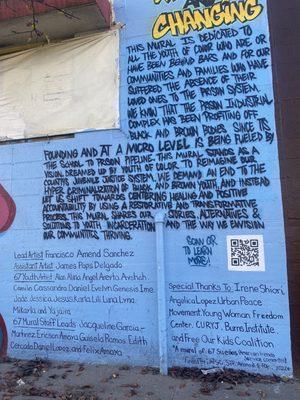 CHANGING
THIS MURAL IS DEDICATED TO
ALL THE YOUTH OF COLOR WHO ARE OR
HAVE BEEN BEHIND BARS AND FOR OUR
COMMUNITIES AND FAMILIES WHO HAVE
SUFFERED THE ABSENCE OF THEIR
LOVED ONES TO THE PRISON SYSTEM.
WE KNOW THAT THE PRISON INDUSTRIAL
COMPLEX HAS BEEN PROFITING OFF
BLACK AND BROWN BODIES SINCE ITS
FOUNDING AND AT A MICRO LEVEL IS BEING FUELED BY
THE SCHOOL TO PRISON PIPELINE. THIS MURAL STANDS AS A
VISION DREAMED UP BY YOUTH OF COLOR TO REIMAGINE OUR
COUNTY'S JUVENILE JUSTICE SYSTEM. WE DEMAND AN END TO THE
HYPER CRIMINALIZATION OF BLACK AND BROWN YOUTH, AND INSTEAD
LET US SHIFT TOWARDS CENTERING HEALING AND POSITIVE
ACCOUNTABILITY BY USING A RESTORATIVE AND TRANSFORMATIVE
PROCESS. THIS MURAL SHARES OUR STORIES, ALTERNATIVES &
SOLUTIONS TO YOUTH INCARCERATION AND THE WAY WE ENVISION
OUR COMMUNITIES THRIVING.
SCAN OR
TO LEARN
MORE!
Lead Artist Francisco Amend Sanchez
Assistant Artist James Pops Delgado
67 Youth Artist Alan Alina Angel Averta Avehah
Camilo Cassandra Daniel Evelyn Genesis Irne
Jade Jessica Jesus Karla Lili Luna Lyna
Milkarla and Yajaira
67 Mural Staff Leads Jacqueline Garcia-
Martinez Ericson Amaya Guisela Ramos Edith
Cercado Daniel Lopez and Felix Amaya
Special Thanks To Irene Shiori
Angelica Lopez Urban Peace
Movement Young Women Freedom
Center. CURYJ. Burns Institute
and Free Our Kids Coalition
"A mural of 67 Sueños American Friends
Service Committee"